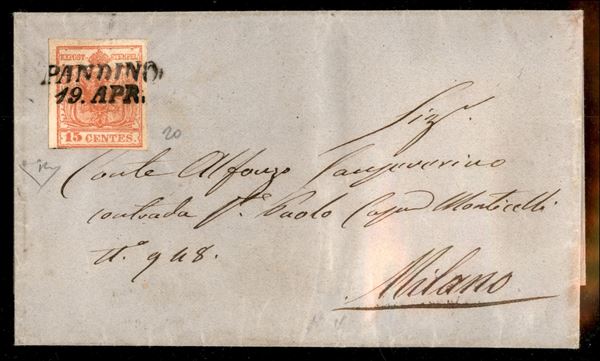 K.K.POST-STEMPEL
PANDINO
19. APR.
15 CENTES
20
Sigr.
Conte Alfonso Sanseverino
contrada S. Paolo Casa Monticelli
N.° 948.
Milano